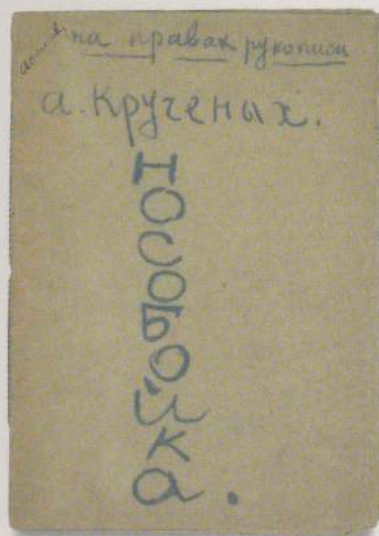 на правах рукописи
а. Крученых.
НОСОБОЙКА.